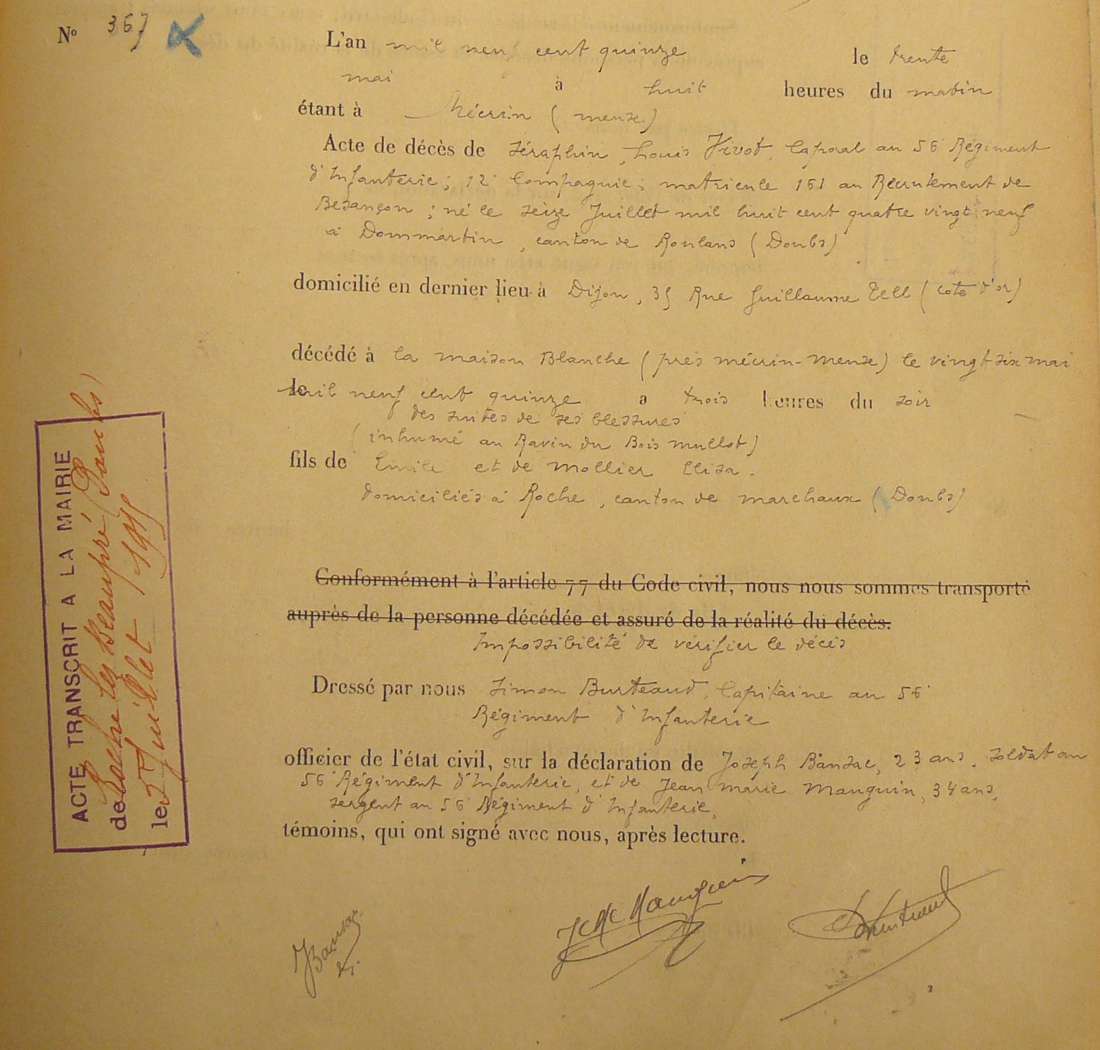 N° 367
L'an mil neuf cent quinze le trente
mai à huit heures du matin
étant à Mécrin (meuse)
Acte de décès de Séraphin, Louis Vivot, Caporal au 56e Régiment
d'Infanterie; 12e Compagnie; matricule 161 au Recrutement de
Besançon; né le seize Juillet mil huit cent quatre vingt neuf
à Dommartin, canton de Roulans (Doubs)
domicilié en dernier lieu à Dijon, 35 Rue Guillaume Tell (cote d'or)
décédé à la maison Blanche (près mécrin-meuse) le vingt six mai
le mil neuf cent quinze a trois heures du soir
des suites de ses blessures
(inhumé au Ravin du Bois mullot)
fils de Emile et de Mollier Elisa.
domiciliés à Roche, canton de marchaux (Doubs)
Conformément à l'article 77 du Code civil, nous nous sommes transporté
auprès de la personne décédée et assuré de la réalité du décès.
Impossibilité de vérifier le décès
Dressé par nous Simon Burteaud, Capitaine au 56e
Régiment d'Infanterie
officier de l'état civil, sur la déclaration de Joseph Banzac, 23 ans, soldat au
56e Régiment d'Infanterie, et de Jean marie Manguin, 34 ans,
sergent au 56e Régiment d'Infanterie,
témoins, qui ont signé avec nous, après lecture.
JM Manguin
ACTE TRANSCRIT A LA MAIRIE
de Roche les Beaupré (Doubs)
le 5 Juillet 1915